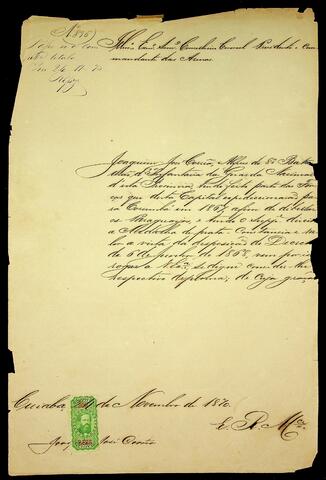 Illmo Exmo Senr Conselheiro Coronel Presidente e Com
mandante das Armas.
24 11 70
Joaquim José Corrêa, Alferes do 5º Bata
lhão d'Infantaria da Guarda Nacional
d'esta Provincia, tendo feito parte das for
ças que desta Capital expedicionarão pa
ra Corumbá em 1867 afim de debellar
os Paraguayos, e tendo o Suppe direito
a Medalha de prata - Constancia e Va
lor a vista da disposição do Decreto
de 6 de de 1867, vem por is
so rogar a V. Exa. se digne conceder-lhe
respectivo diploma; de cuja graça
Cuiabá 24 de Novembro de 1870.
E. R. Mce
José Corrêa